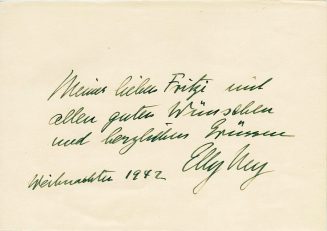 Meiner lieben Fritzi mit
allen guten Wünschen
und herzlichen Grüssen
Elly Ney
Weihnachten 1942